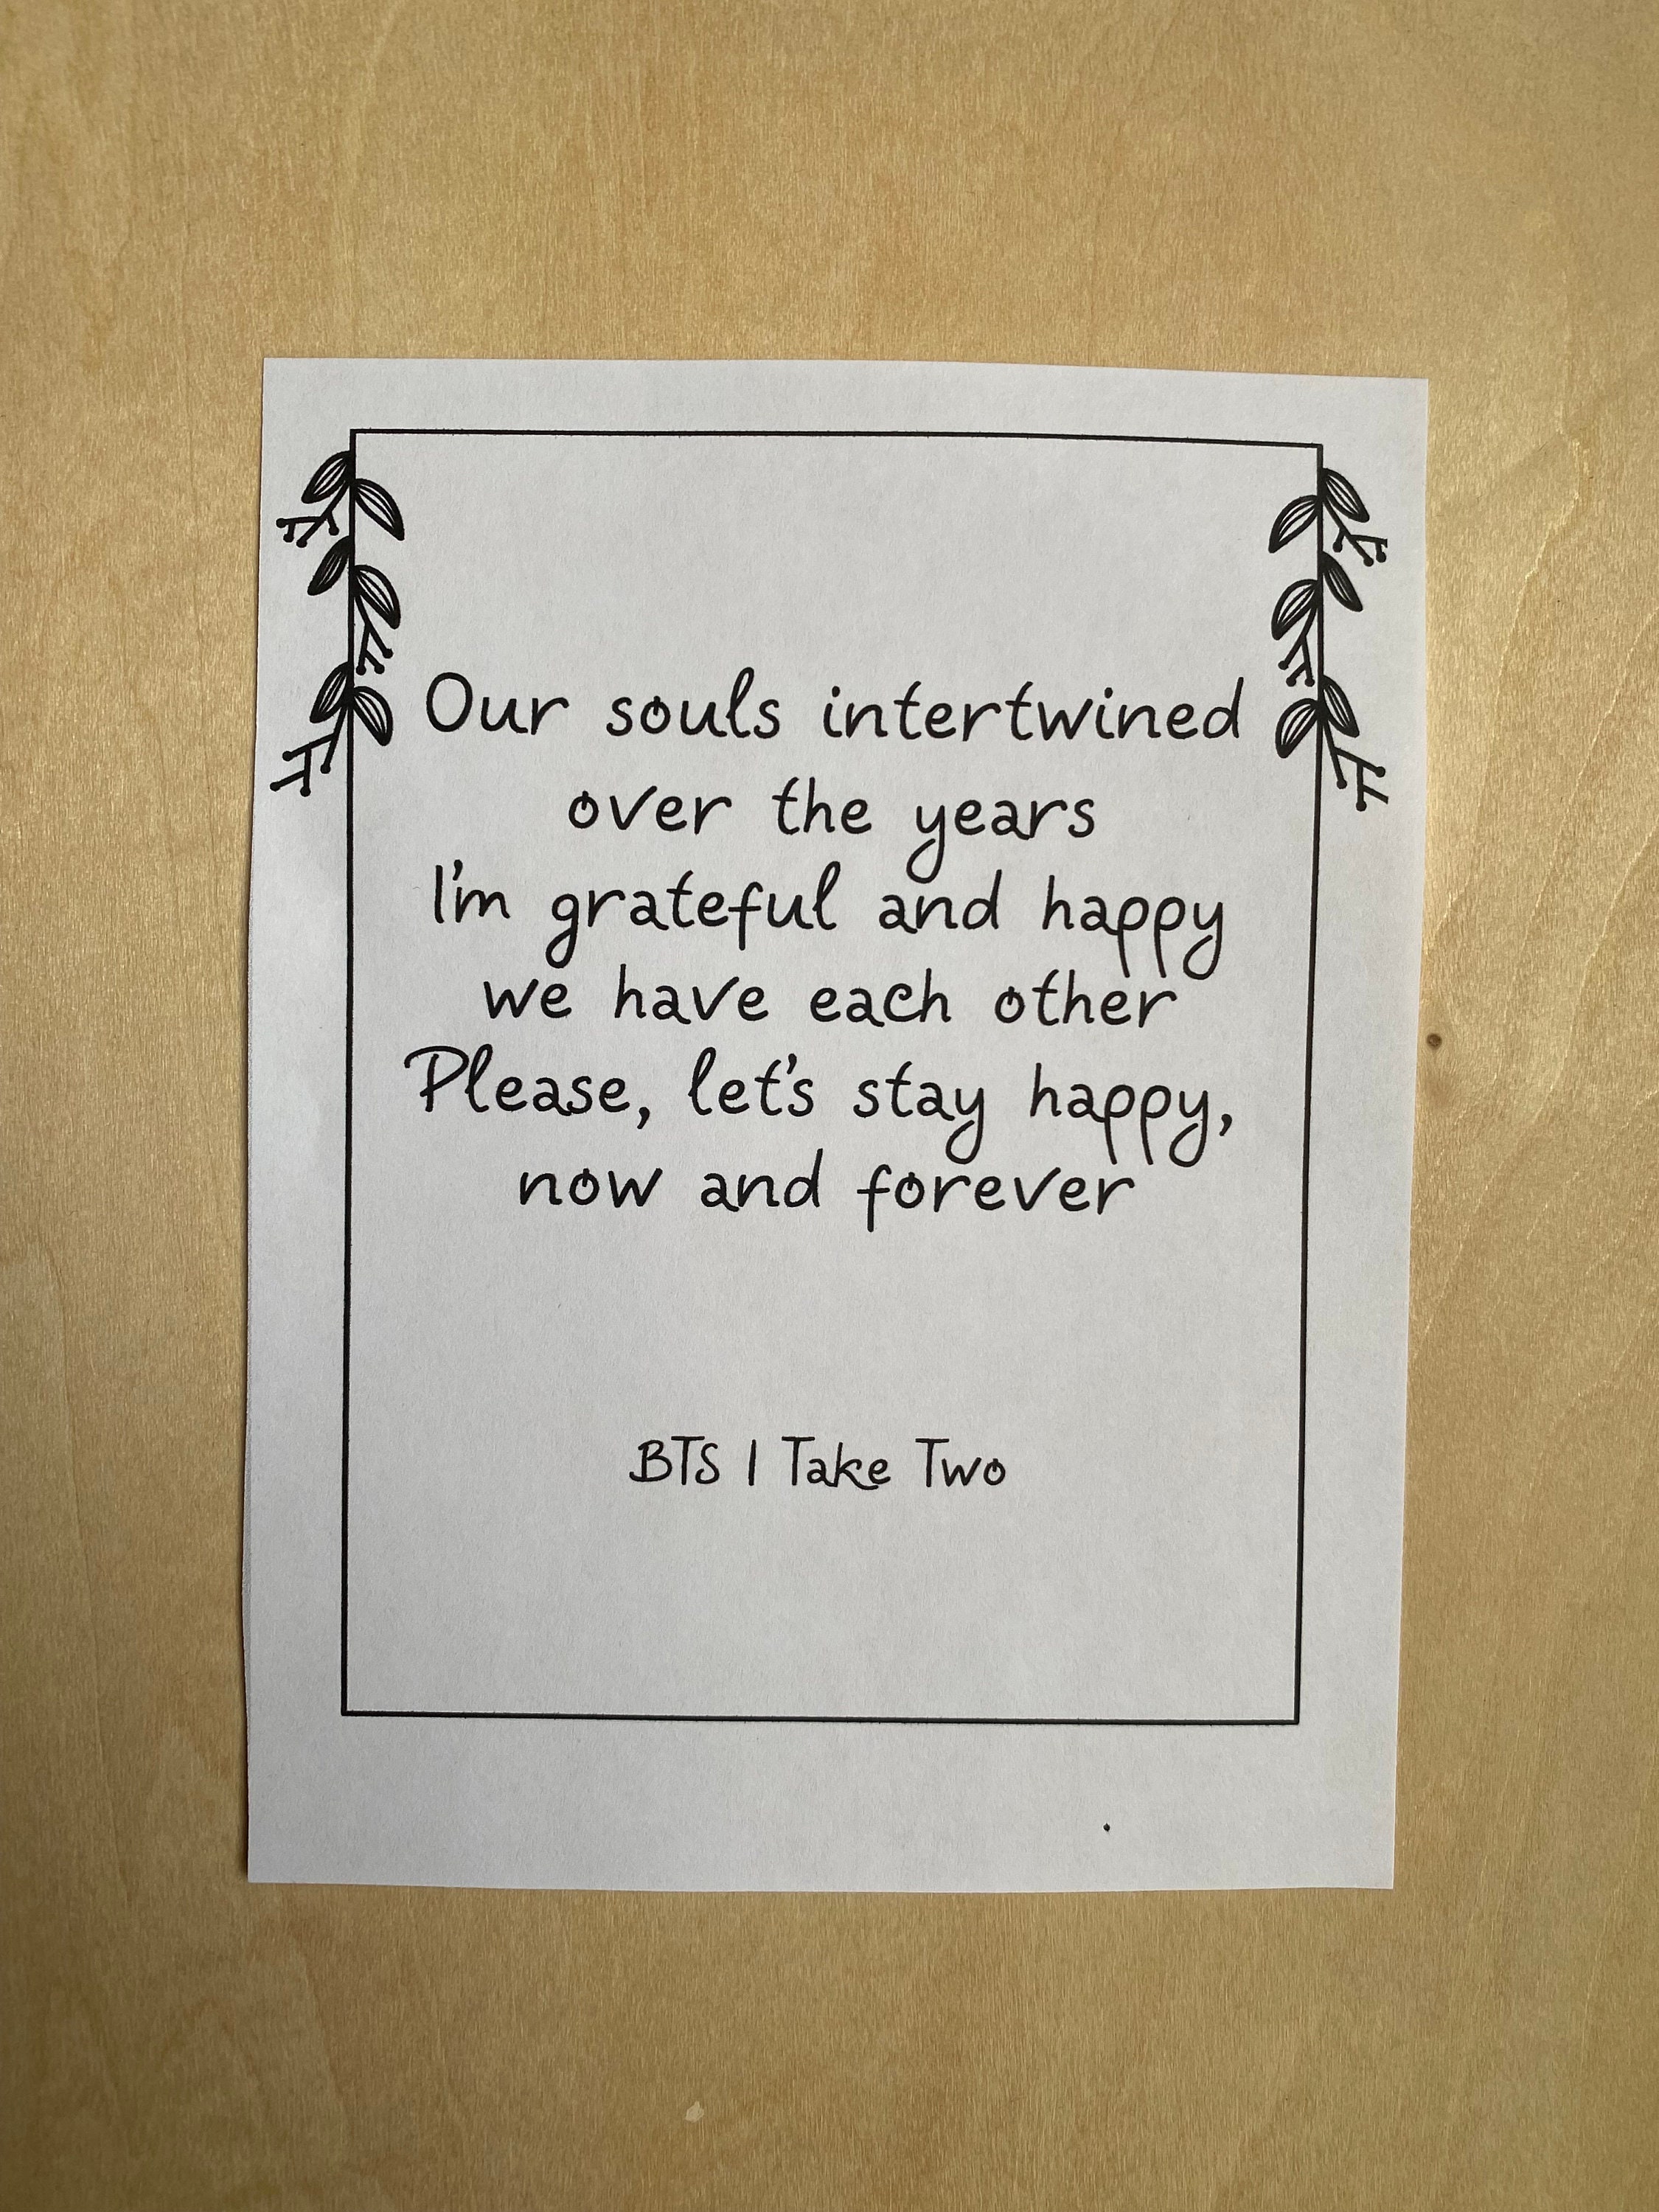 Our souls intertwined
over the years
I'm grateful and happy
we have each other
Please, let's stay happy,
now and forever
BTS | Take Two